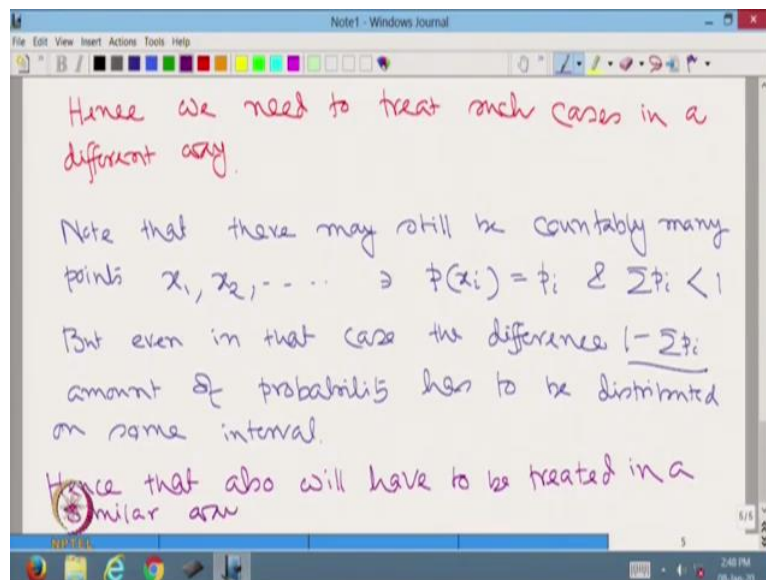 Note1 - Windows Journal
File Edit View Insert Actions Tools Help
Hence we need to treat such cases in a
different way.
Note that there may still be countably many
points x₁, x₂, - - - - ∋ p(xᵢ) = pᵢ & Σpᵢ < 1
But even in that case the difference 1 - Σpᵢ
amount of probability has to be distributed
on some interval.
Hence that also will have to be treated in a
similar way
6/6
NPTEL
5
2:48 PM